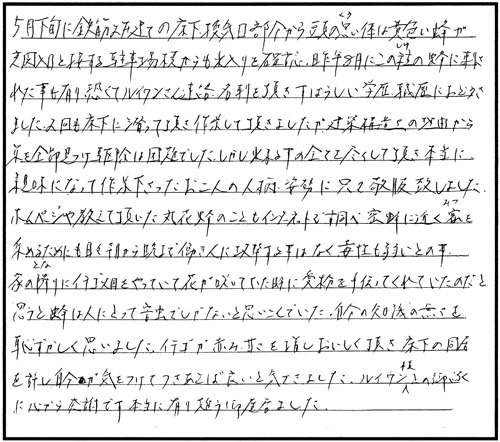 5月下旬に鉄筋2階建ての床下換気口部分から頭の黒い体は黄色い蜂が
出入りと接する駐車場横からも出入りを確認、昨年8月にこの種の蜂に刺さ
れた事も有り恐くてルイワンさんに連絡 名刺を頂きすばらしい学歴 職歴におどろき
ました。2回も床下に潜って頂き作業して頂きましたが建築構造上の理由から
巣を全部見つけ駆除は困難でした。しかし出来る事の全てを尽くして頂き本当に
親味になって作業下さったお二人の人柄、姿勢に只々敬服致しました。
ホームページや教えて頂いた丸花蜂のこともインターネットで調べ 蜜蜂に近く蜜を
集めるためにも朝から晩まで働き人に攻撃する事はなく毒性も弱いとの事。
家の隣りにイチゴ畑をやっていて花が咲いていた時に受粉を手伝ってくれていたのだと
思うと蜂は人にとって害虫でしかないと思いこんでいた、自分の知識の無さを
恥ずかしく思いました。イチゴが赤み 甘さを増しおいしく頂き 床下の同居
を許し自分が気をつけてつきあえば良いと気ずきました。ルイワン様との御縁
に心から感謝です 本当に有り難う御座居ました。